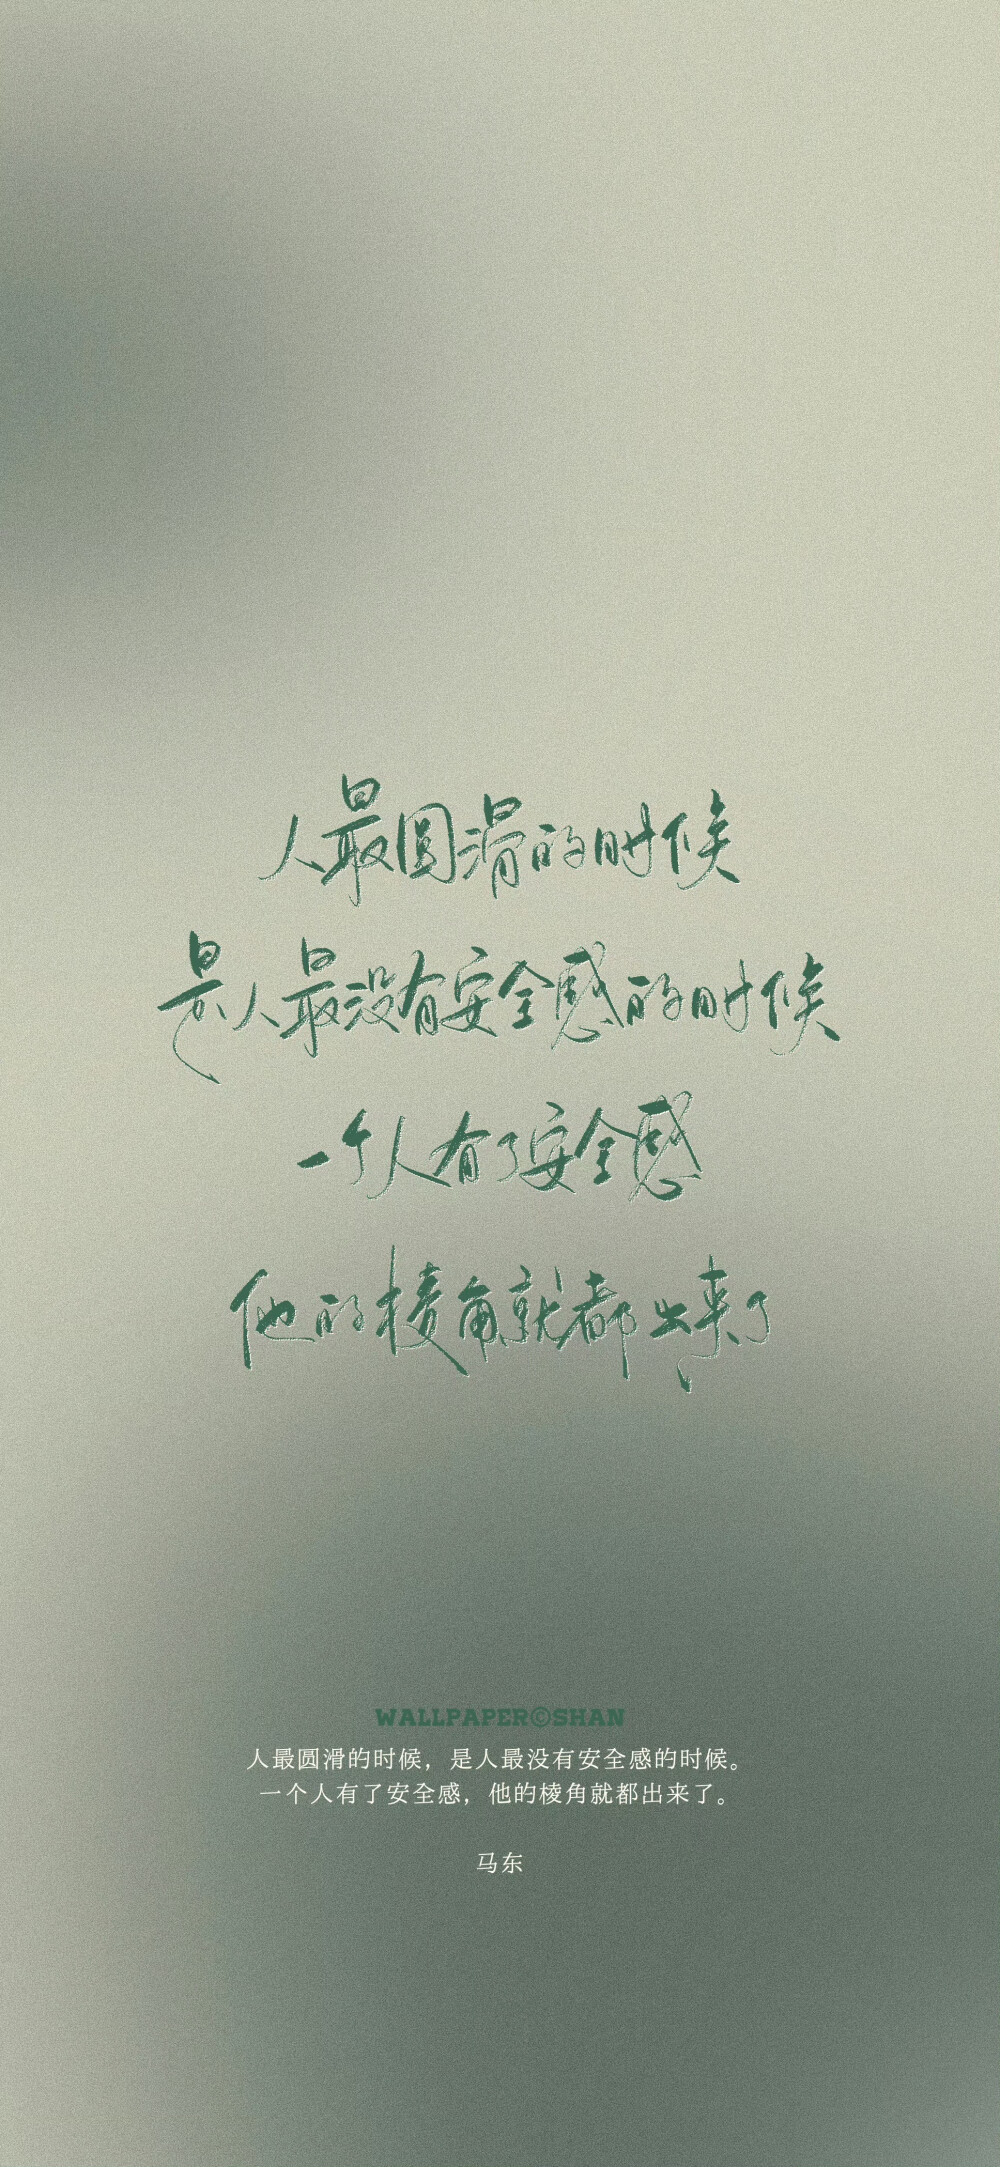 人最圆滑的时候
是人最没有安全感的时候
一个人有了安全感
他的棱角就都出来了
WALLPAPER©SHAN
人最圆滑的时候，是人最没有安全感的时候。
一个人有了安全感，他的棱角就都出来了。
马东